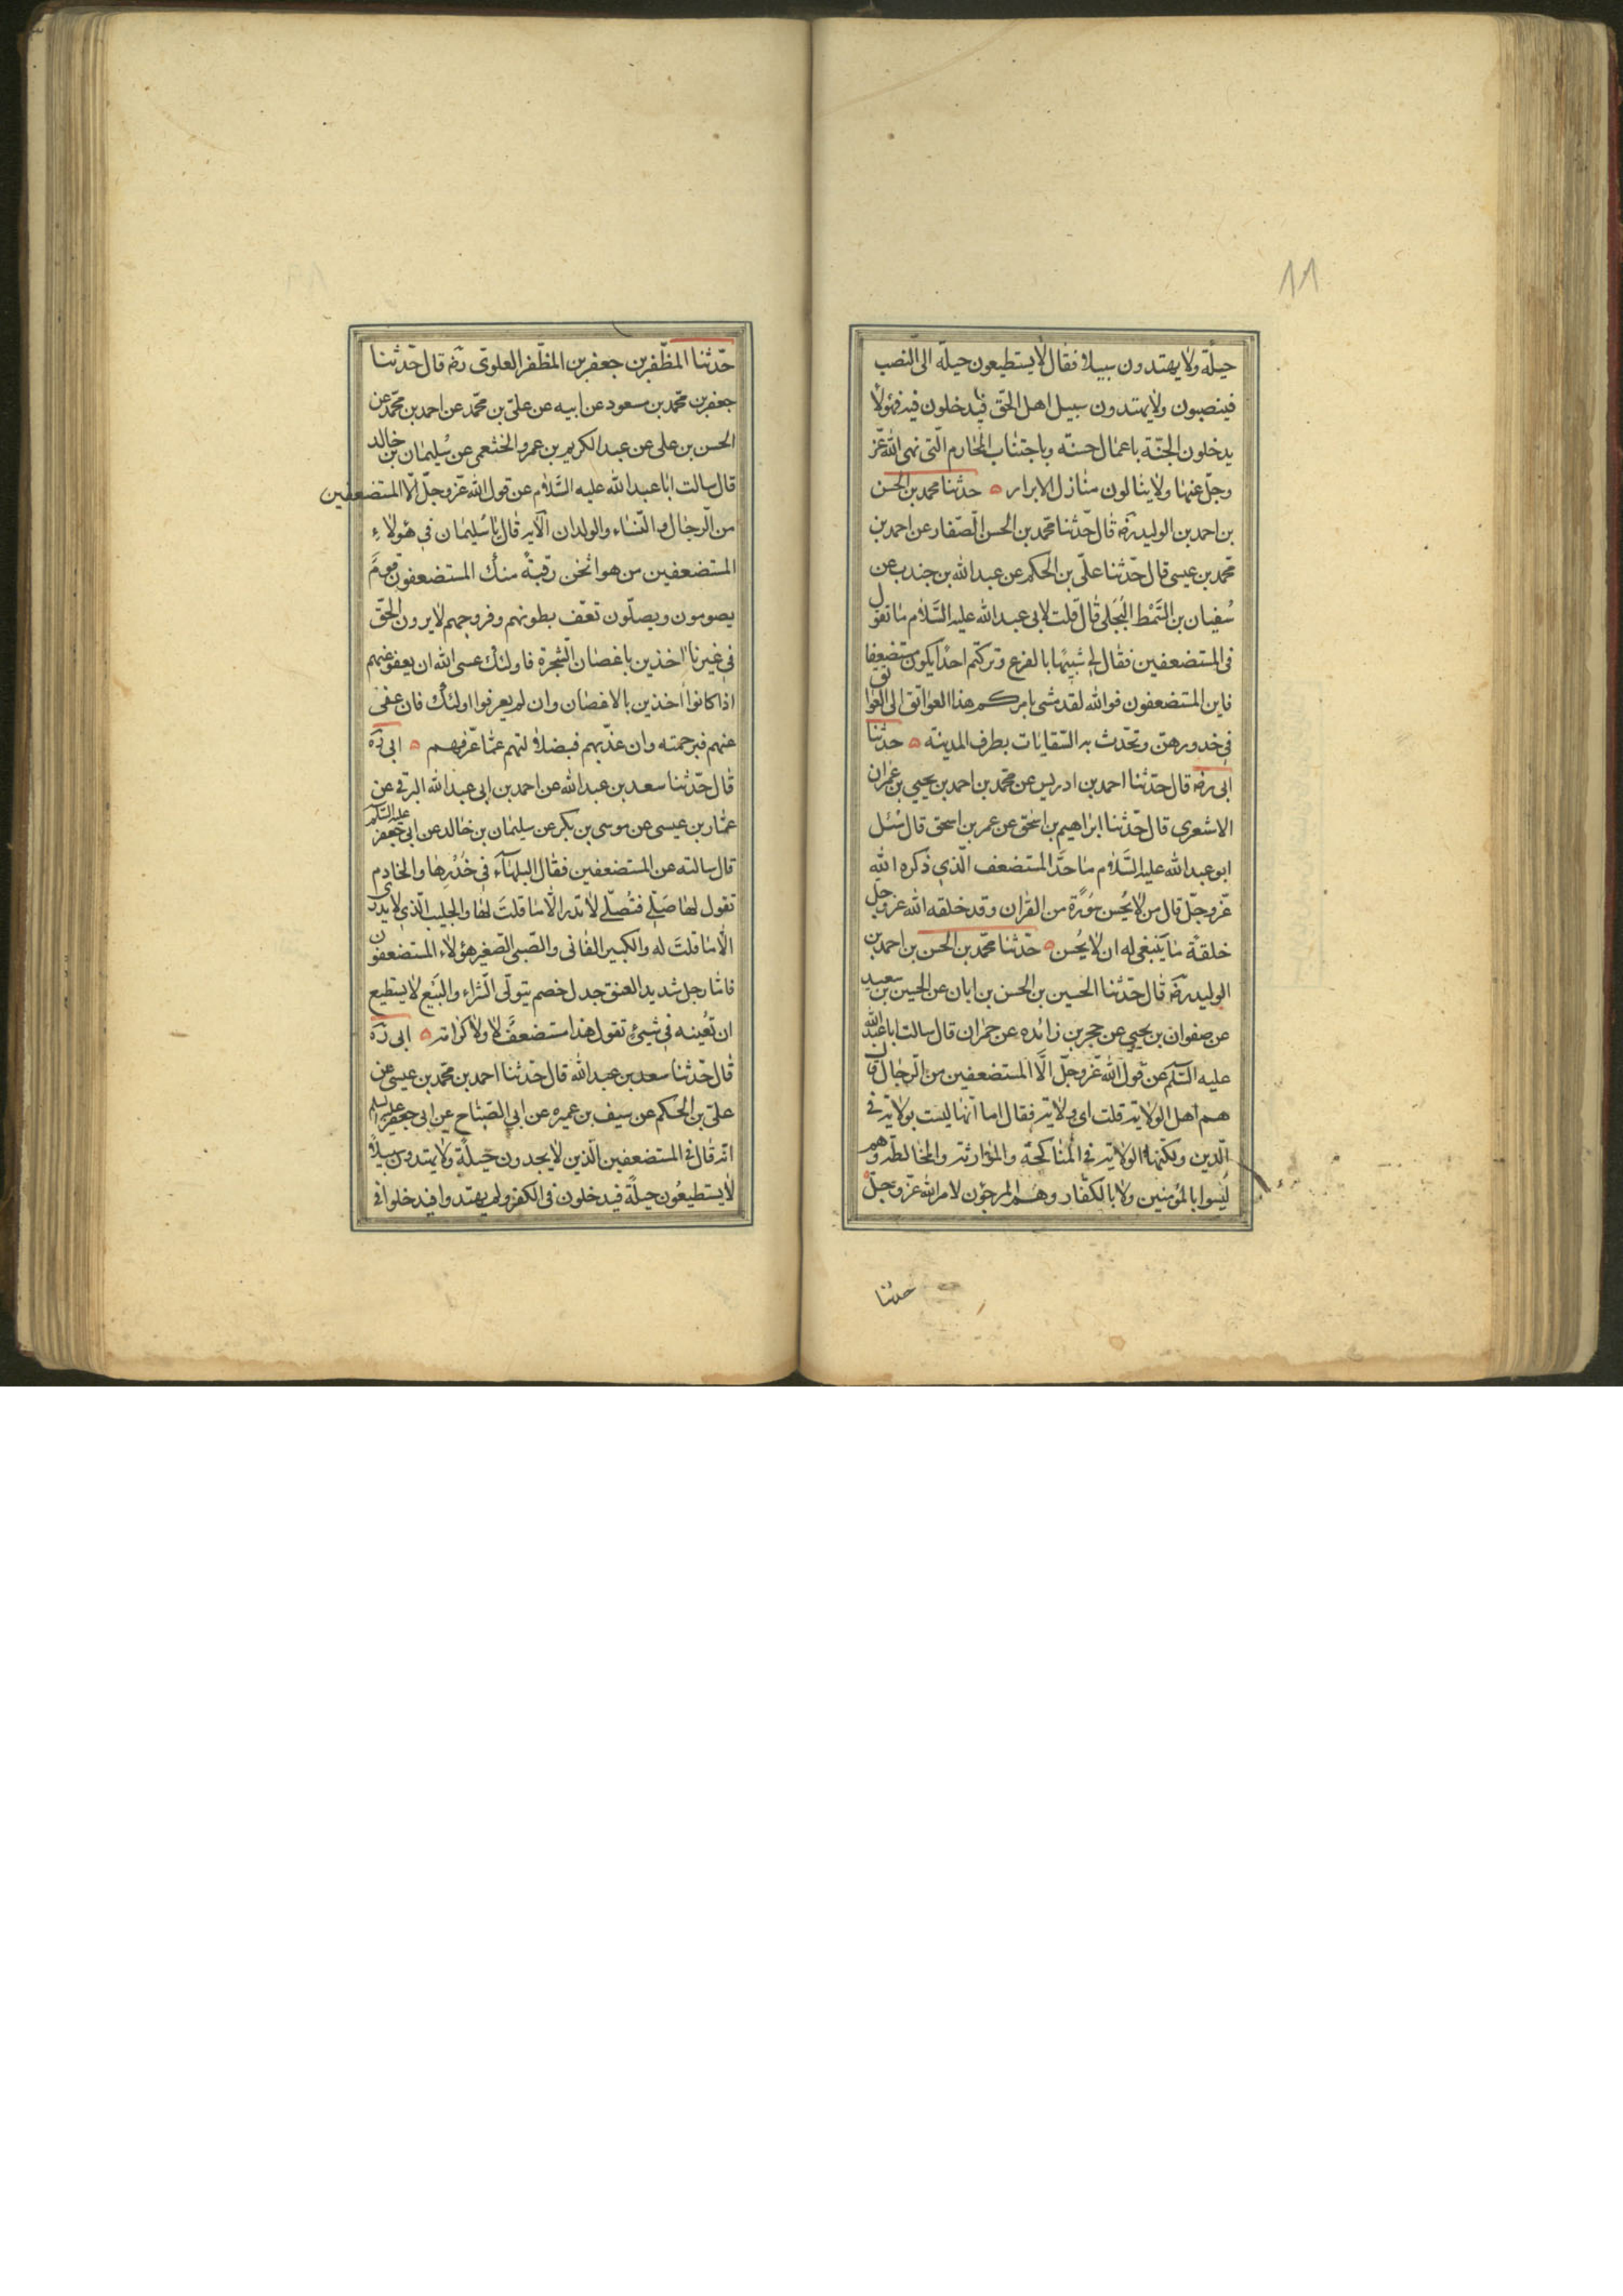 ١١
حيلة ولا يهتدون سبيلا فقال لا يستطيعون حيلة الى النصب
فينصبون ولا يهتدون سبيل اهل الحق فيدخلون فيه فهؤلاء
يدخلون الجنة باعمال حسنة وباجتناب المحارم التى نهى الله عز
وجل عنها ولا ينالون منازل الابرار حدثنا محمد بن الحسن
بن احمد بن الوليد رضه قال حدثنا محمد بن الحسن الصفار عن احمد بن
محمد بن عيسى قال حدثنا على بن الحكم عن عبد الله بن جندب عن
سفيان بن السمط البجلى قال قلت لابى عبد الله عليه السلام ما تقول
فى المستضعفين فقال لى شبيها بالفزع وتركتم احدا يكون مستضعفا
فاين المستضعفون فوالله لقد مشى بامركم هذا العواتق الى العواتق
فى خدورهن وتحدث به السقايات بطرف المدينة حدثنا
ابى رضه قال حدثنا احمد بن ادريس عن محمد بن احمد بن يحيى بن عمران
الاشعرى قال حدثنا ابراهيم بن اسحق عن عمر بن اسحق قال سئل
ابو عبد الله عليه السلام ما حد المستضعف الذى ذكره الله
عز وجل قال من لا يحسن سورة من القران وقد خلقه الله عز وجل
خلقة ما ينبغى له ان لا يحسن حدثنا محمد بن الحسن بن احمد بن
الوليد رضه قال حدثنا الحسين بن الحسن بن ابان عن الحسين بن سعيد
عن صفوان بن يحيى عن حجر بن زائده عن حمران قال سالت ابا عبد الله
عليه السلم عن قول الله عز وجل الا المستضعفين من الرجال قال
هم اهل الولاية قلت اى ولاية فقال اما انها ليست بولاية فى
الدين ولكنها الولاية فى المناكحة والموارثة والمخالطة وهم
ليسوا بالمؤمنين ولا بالكفار وهم المرجون لامر الله عز وجل
حدثنا
حدثنا المظفر بن جعفر بن المظفر العلوى رضه قال حدثنا
جعفر بن محمد بن مسعود عن ابيه عن على بن محمد عن احمد بن محمد عن
الحسن بن على عن عبد الكريم بن عمرو الخثعمى عن سليمان بن خالد
قال سالت ابا عبد الله عليه السلام عن قول الله عز وجل الا المستضعفين
من الرجال والنساء والولدان الآية قال يا سليمان فى هؤلاء
المستضعفين من هو اثخن رقبة منك المستضعفون قوم
يصومون ويصلون تعف بطونهم وفروجهم لا يرون الحق
فى غيرنا اخذين باغصان الشجرة فاولئك عسى الله ان يعفو عنهم
اذا كانوا اخذين بالاغصان وان لم يعرفوا اولئك فان عفى
عنهم فبرحمته وان عذبهم فبضلالتهم عما عرفهم ابى ره
قال حدثنا سعد بن عبد الله عن احمد بن ابى عبد الله البرقى عن
عثمان بن عيسى عن موسى بن بكر عن سليمان بن خالد عن ابى جعفر عليه السلم
قال سالته عن المستضعفين فقال البلهاء فى خدرها والخادم
تقول لها صلى فتصلى لا تدر الا ما قلت لها والجليب الذى لا يدرى
الا ما قلت له والكبير الفانى والصبى الصغير هؤلاء المستضعفون
فاما رجل شديد العنق جدل خصم يتولى الشراء والبيع لا يستطيع
ان تعينه فى شيئ تقول هذا مستضعف لا ولا كرامة ابى ره
قال حدثنا سعد بن عبد الله قال حدثنا احمد بن محمد بن عيسى عن
على بن الحكم عن سيف بن عميره عن ابى الصباح عن ابى جعفر عليه السلم
انه قال فى المستضعفين الذين لا يجدون حيلة ولا يهتدون سبيلا
لا يستطيعون حيلة فيدخلون فى الكفر ولم يهتدوا فيدخلوا فى